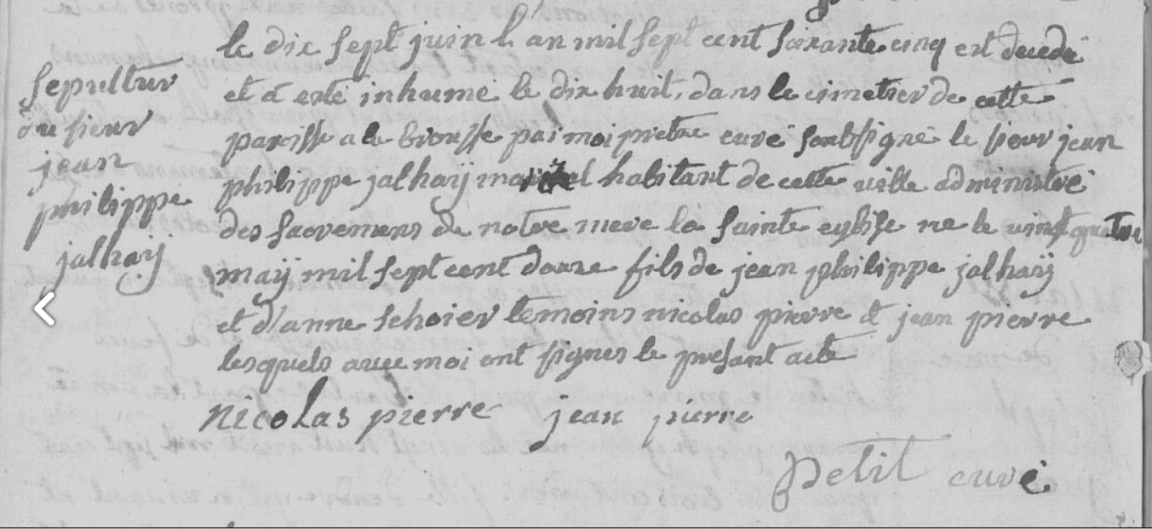 le dix sept juin l an mil sept cent soixante cinq est decedé
et a esté inhume le dix huit, dans le cimetier de cette
paroisse a le brousse par moi pretre curé soubsigné le sieur jean
philippe jalhaÿ habitant de cette ville administré
des sacremens de notre mere la sainte eglise ne le vinst quatre
maÿ mil sept cent douze fils de jean philippe jalhaÿ
et d'anne schoier temoins nicolas pierre et jean pierre
lesquels avec moi ont signes le presant acte
nicolas pierre jean pierre
petit curé
sepultur
du sieur
jean
philippe
jalhaij